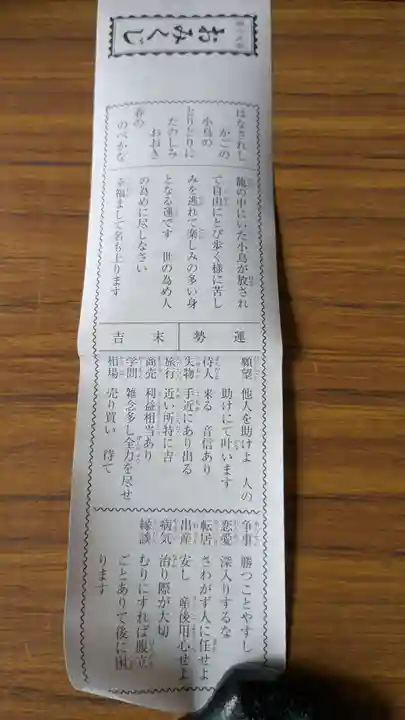 おみくじ
はなされし
かごの
小鳥の
とりどりに
たのしみ
おおき
春の
のべかな
籠の中にいた小鳥が放され
て自由にとび歩く様に苦し
みを逃れて楽しみの多い身
となる運です 世の為め人
の為めに尽しなさい
幸福まして名も上ります
運勢 末吉
願望 他人を助けよ 人の
助けにて叶います
待人 来る 音信あり
失物 手近にあり出る
旅行 近い所特に吉
商売 利益相当あり
学問 雑念多し全力を尽せ
相場 売り買い 待て
争事 勝つことやすし
恋愛 深入りするな
転居 さわがず人に任せよ
出産 安し 産後用心せよ
病気 治り際が大切
縁談 むりにすれば腹立
ごとありて後に困
ります